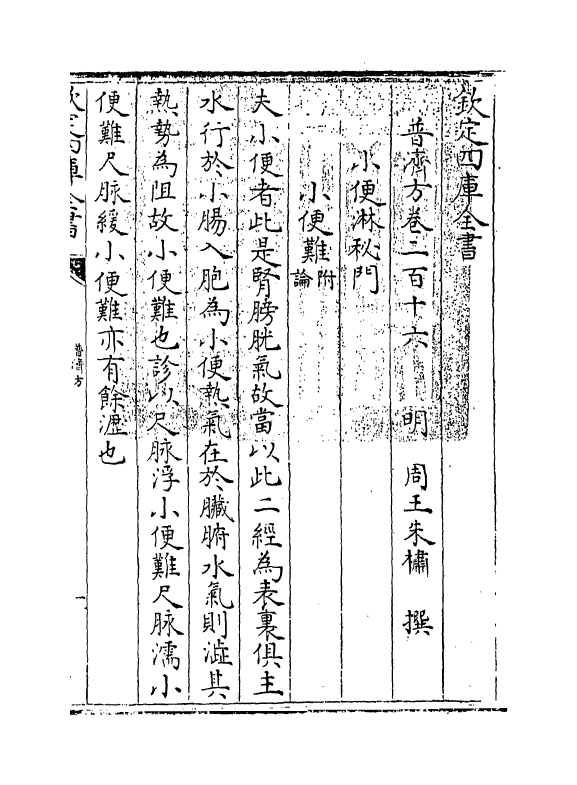 欽定四庫全書
普濟方卷二百十六　明　周王朱橚　撰
小便淋秘門
小便難附論
夫小便者此是腎膀胱氣故當以此二經為表裏俱主
水行於小腸入胞為小便熱氣在於臟腑水氣則澁其
熱勢為阻故小便難也診以尺脉浮小便難尺脉濡小
便難尺脉緩小便難亦有餘瀝也
欽定四庫全書
普濟方
一